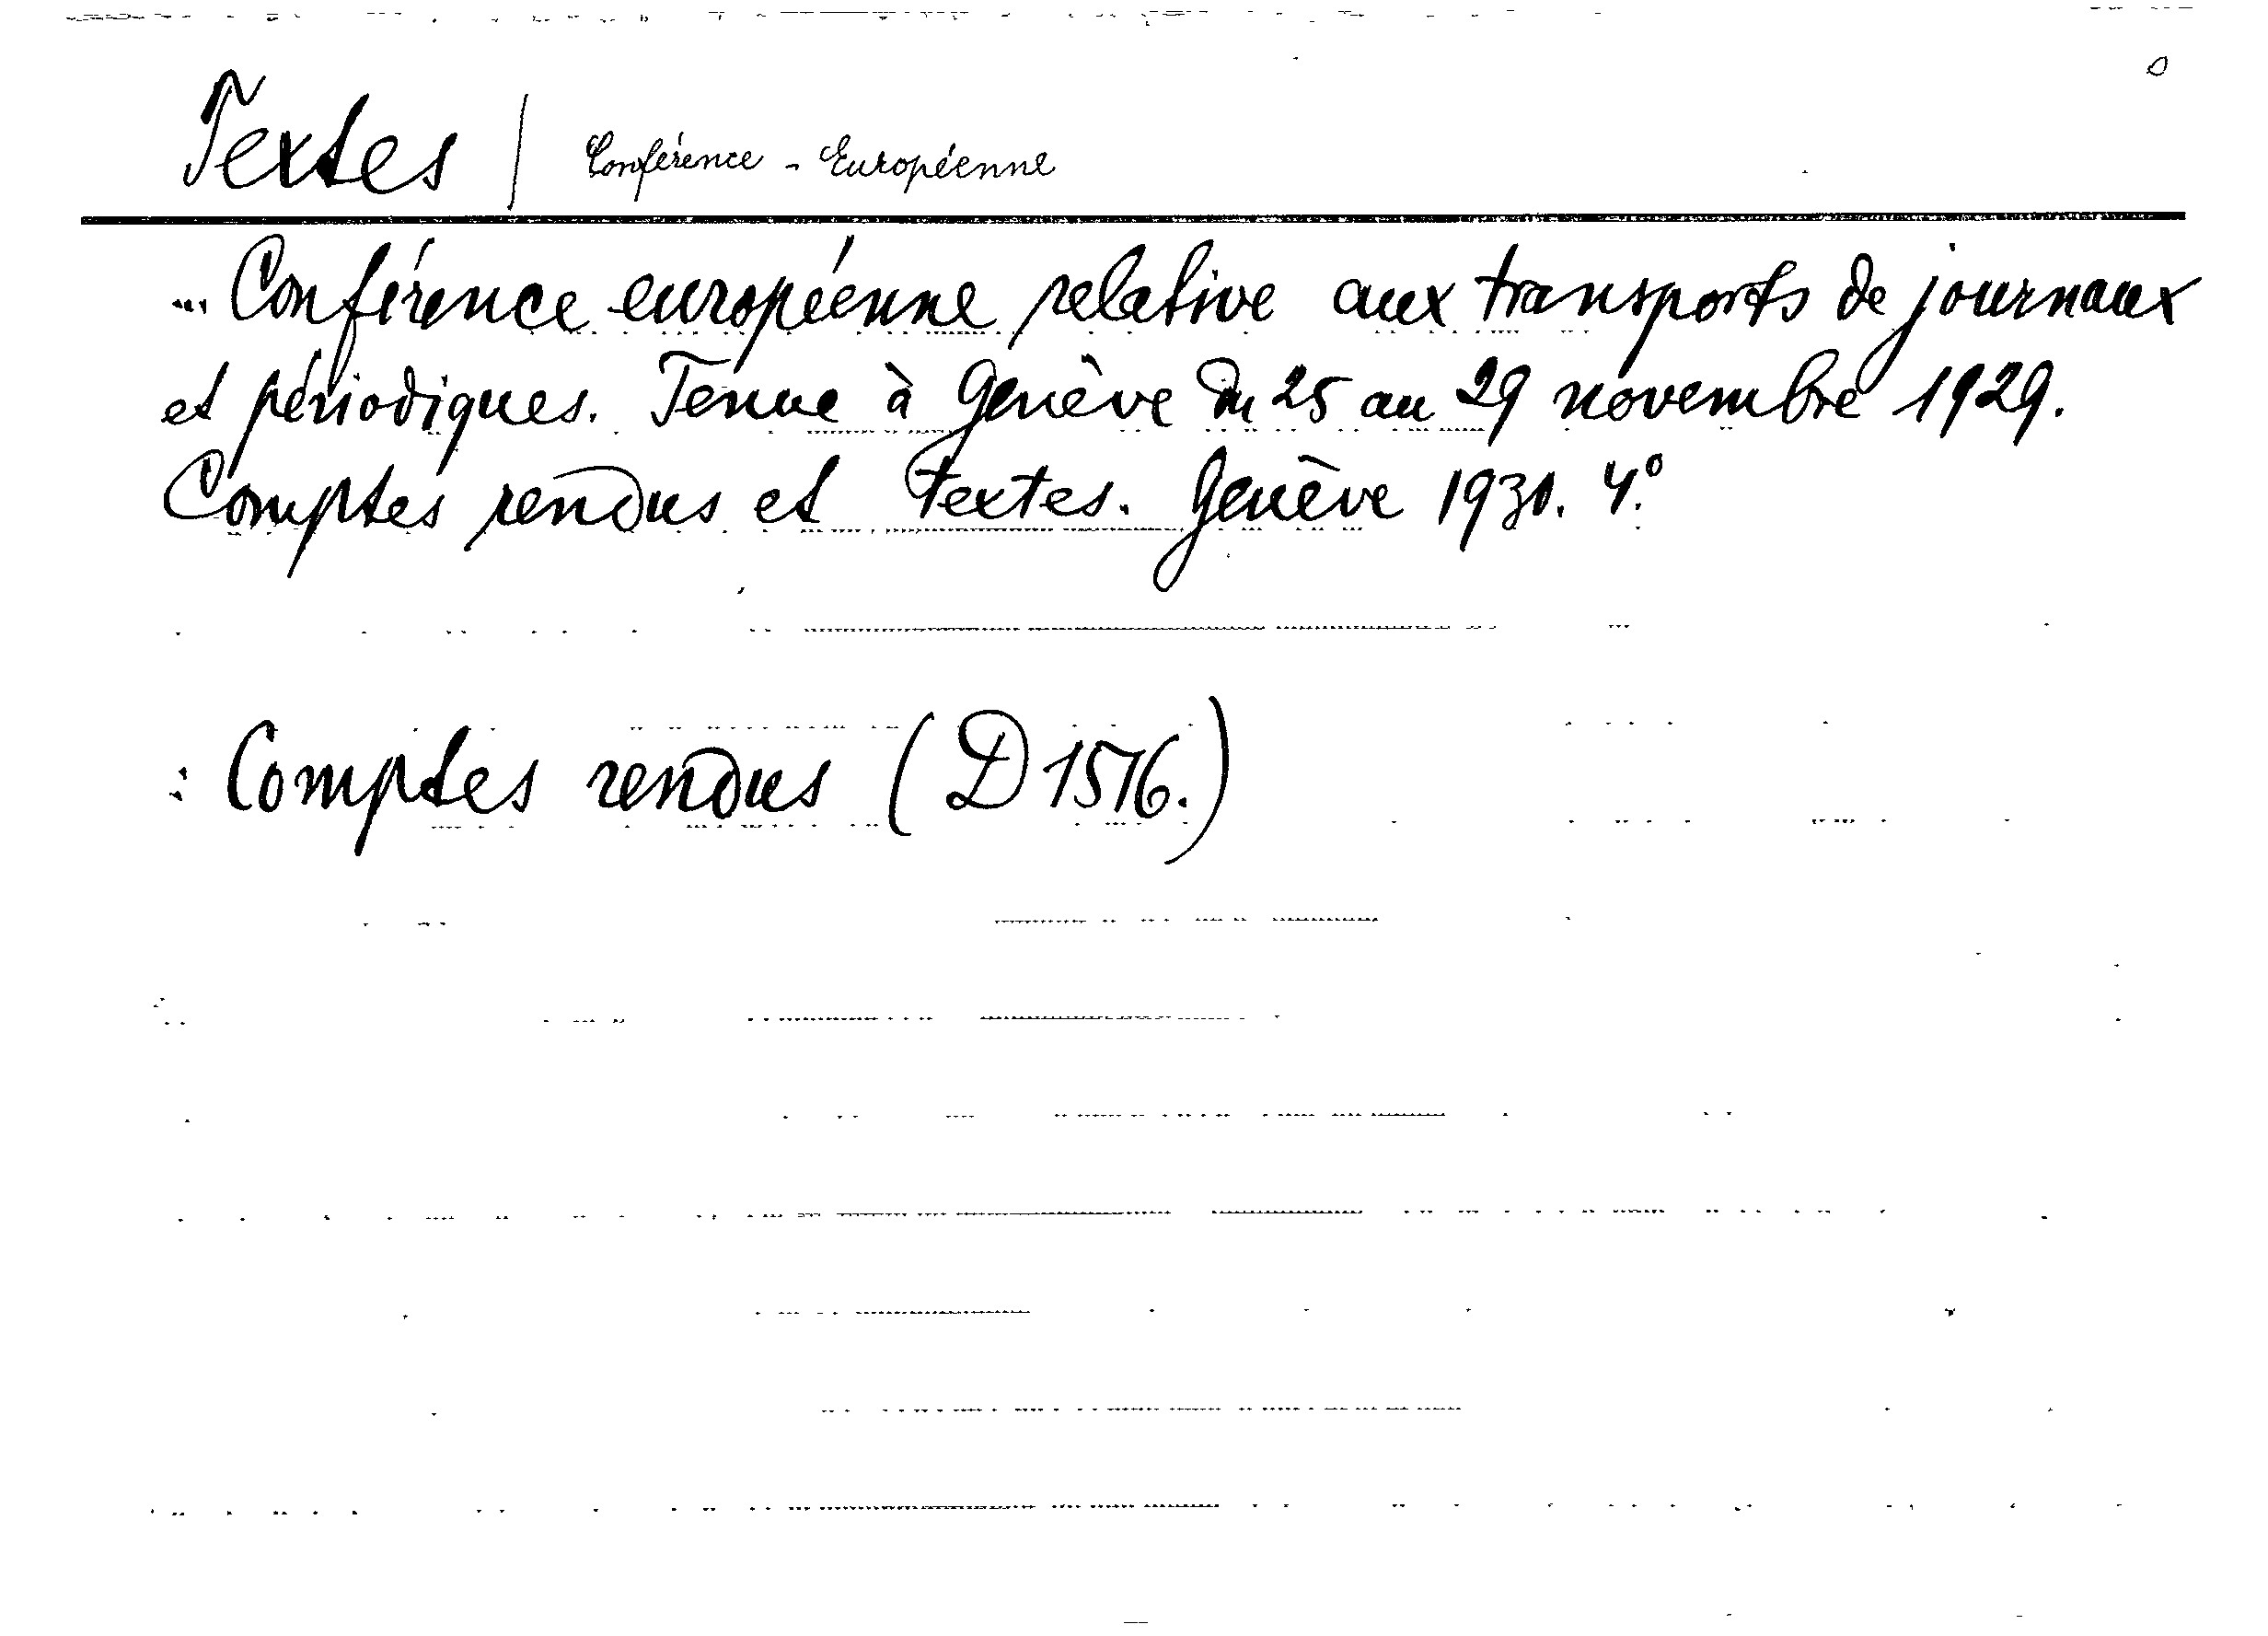 Textes | Conférence - Européenne
... Conférence européenne relative aux transports de journaux
et périodiques. Tenue à Genève du 25 au 29 novembre 1929.
Comptes rendus et textes. Genève 1930. 4°.
: Comptes rendus (D 1576.)